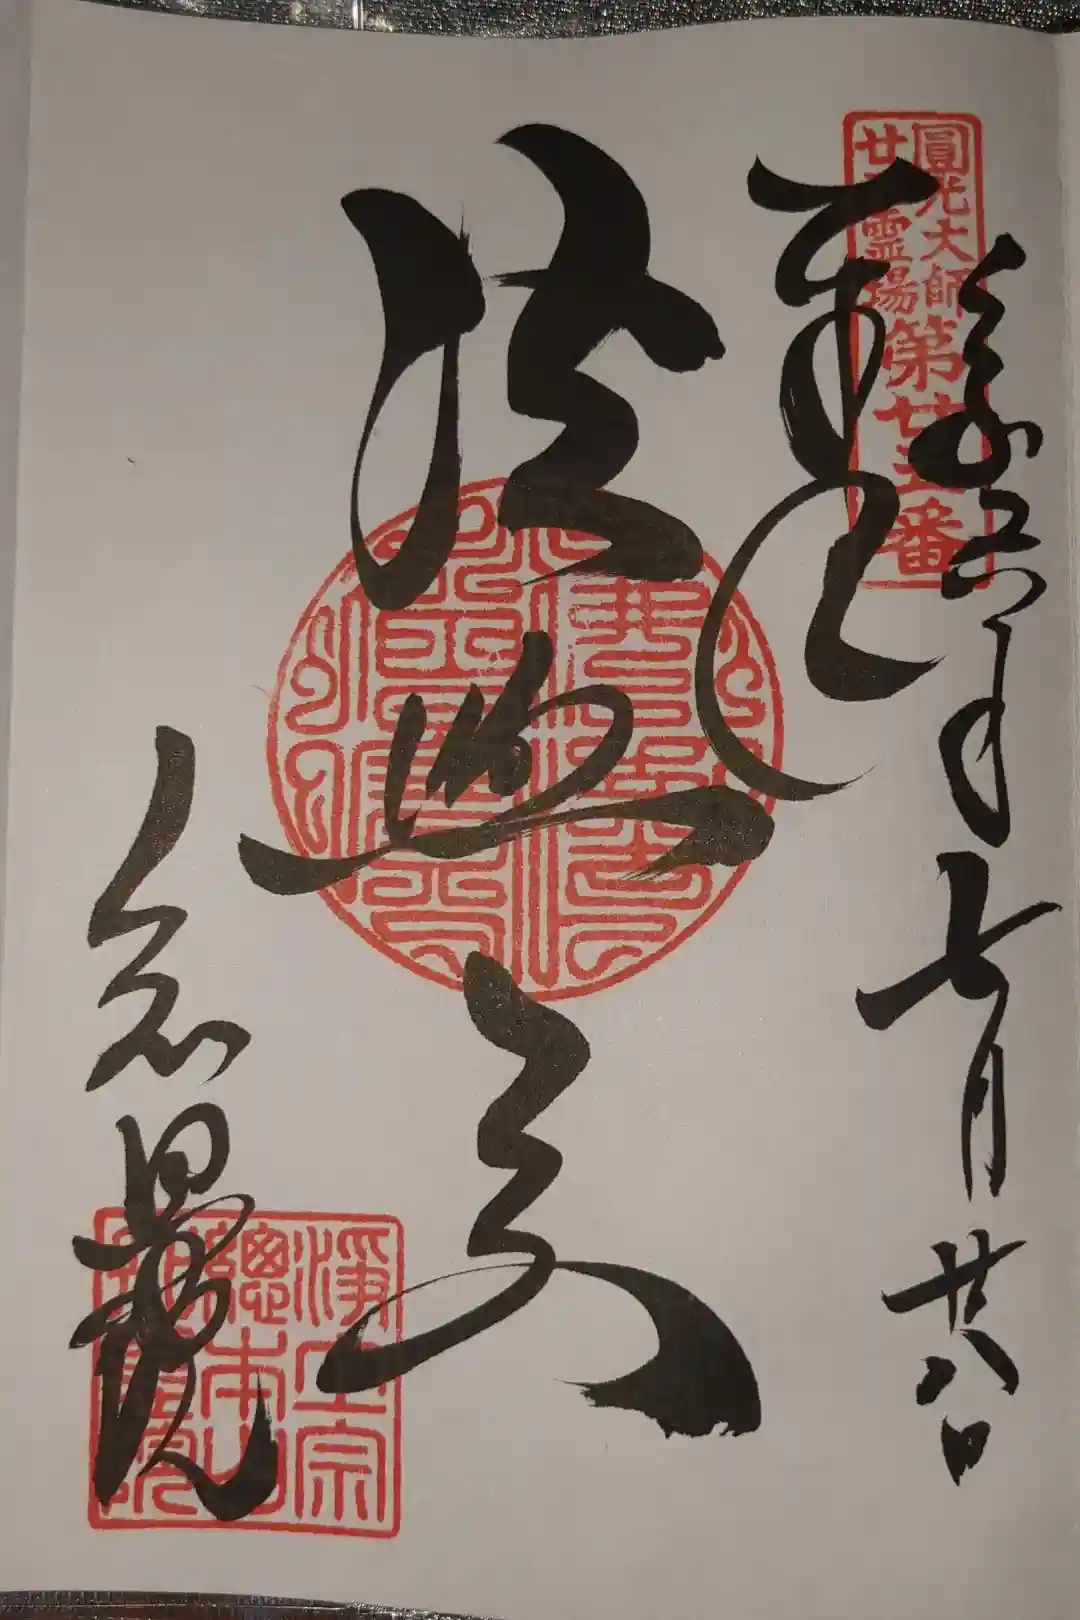 圓光大師
廿五霊場
第廿五番
令和六年七月廿八日
奉拝
法然上人
知恩院
淨土宗
總本山
知恩院